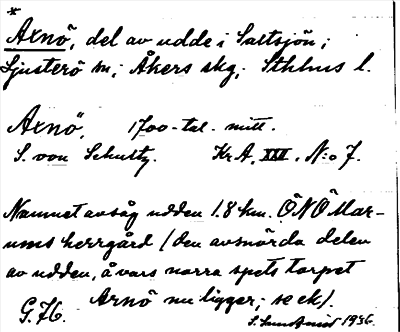 *
Axnö, del av udde i Saltsjön;
Ljusterö sn; Åkers skg; Sthlms l.
Axnö, 1700-tal. mitt.
S. von Schultz. Kr A, XXX, N:o 7.
Namnet avsåg udden 1.8 km. ÖNÖ Mar-
ums herrgård (den avsnörda delen
av udden, å vars norra spets torpet
Arnö nu ligger; se ek).
G. 76. 1936